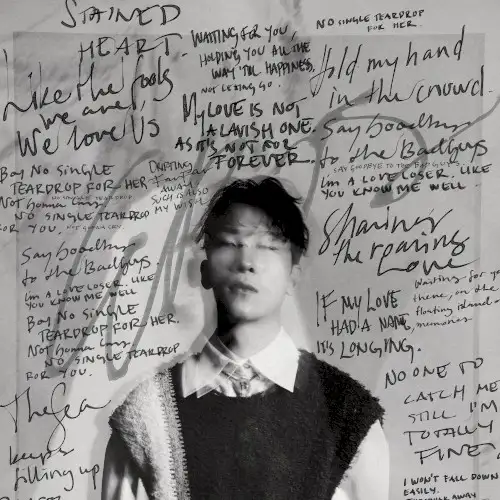 STAINED
HEART
Like the fools
we are,
We love Us
WAITING FOR YOU,
HOLDING YOU ALL THE
WAY 'TIL HAPPINESS,
NOT LETTING GO.
My LOVE IS NOT
A LAVISH ONE.
AS IT'S NOT FOR
FOREVER.
NO SINGLE TEARDROP
FOR HER.
Hold my hand
in the crowd.
Say Goodbye
to the Badguys
SAY GOODBYE TO THE BADGUYS
I'm A LOVE LOSER. LIKE
YOU KNOW ME WELL
Boy No SINGLE
TEARDROP FOR HER
NO SINGLE TEARDROP
NOT Gonna Cry
NO SINGLE TEARDROP
FOR YOU.
NOT GONNA CRY
DRIFTING
FAR FAR
AWAY
SUCH IS ALSO
MY WISH
Sharing
the roaring
Love
Say Goodbye
to the Badguys.
I'm A LOVE LOSER. LIKE
YOU KNOW ME WELL
Boy No SINGLE
TEARDROP FOR HER.
NOT Gonna Cry
NO SINGLE TEARDROP
FOR YOU.
IF MY LOVE
HAD A NAME,
IT'S LONGING.
Waiting for
there, on the
floating island
memories
The Sea
keeps
filling up
NO ONE TO
CATCH ME
STILL I'M
TOTALLY
FINE
I WON'T FALL DOWN
EASILY.
AWAY